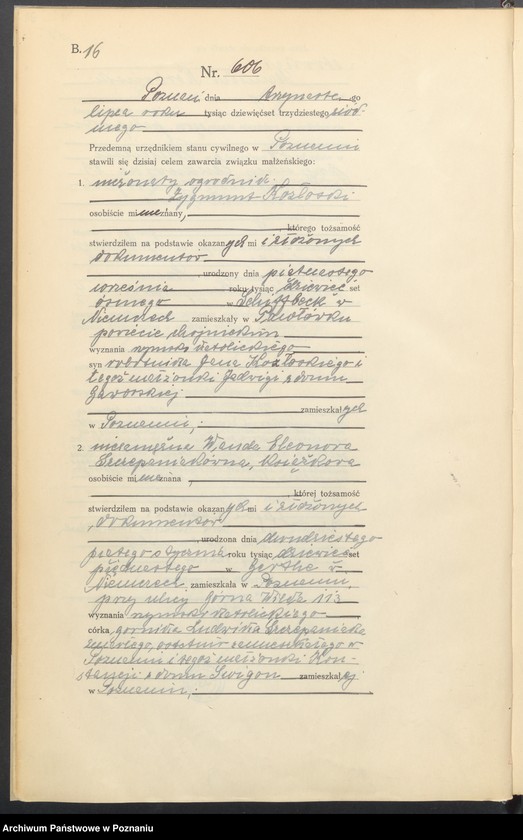 B. 16
Nr. 606
Poznań dnia trzynaste go
lipca roku tysiąc dziewięćset trzydziestego siód-
mego
Przedemną urzędnikiem stanu cywilnego w Poznaniu
stawili się dzisiaj celem zawarcia związku małżeńskiego:
1. nieżonaty ogrodnik
Zygmunt Kozłowski
osobiście mi nieznany,
, którego tożsamość
stwierdziłem na podstawie okazanych mi i złożonych
dokumentów
, urodzony dnia piętnastego
września roku tysiąc dziewięćset
ósmego w Schiffbeck w
Niemczech zamieszkały w
powiecie chojnickim
wyznania rzymsko katolickiego
syn robotnika Jana Kozłowskiego i
tegoż małżonki Jadwigi z domu
zamieszkałych
w Poznaniu,
2. niezamężna Wanda Eleonora
Szczepaniakówna, książkowa
osobiście mi nieznana ,
, której tożsamość
stwierdziłem na podstawie okazanych mi i złożonych
dokumentów
, urodzona dnia dwudziestego
piątego stycznia roku tysiąc dziewięćset
piętnastego w Gerthe w
Niemczech, zamieszkała w Poznaniu,
przy ulicy Górna Wilda 113
wyznania rzymsko katolickiego
córka górnika Ludwika Szczepaniaka
zmarłego, ostatnio zamieszkałego w
Poznaniu i tegoż małżonki Kon-
stancji z domu zamieszkałej
w Poznaniu,
Archiwum Państwowe w Poznaniu